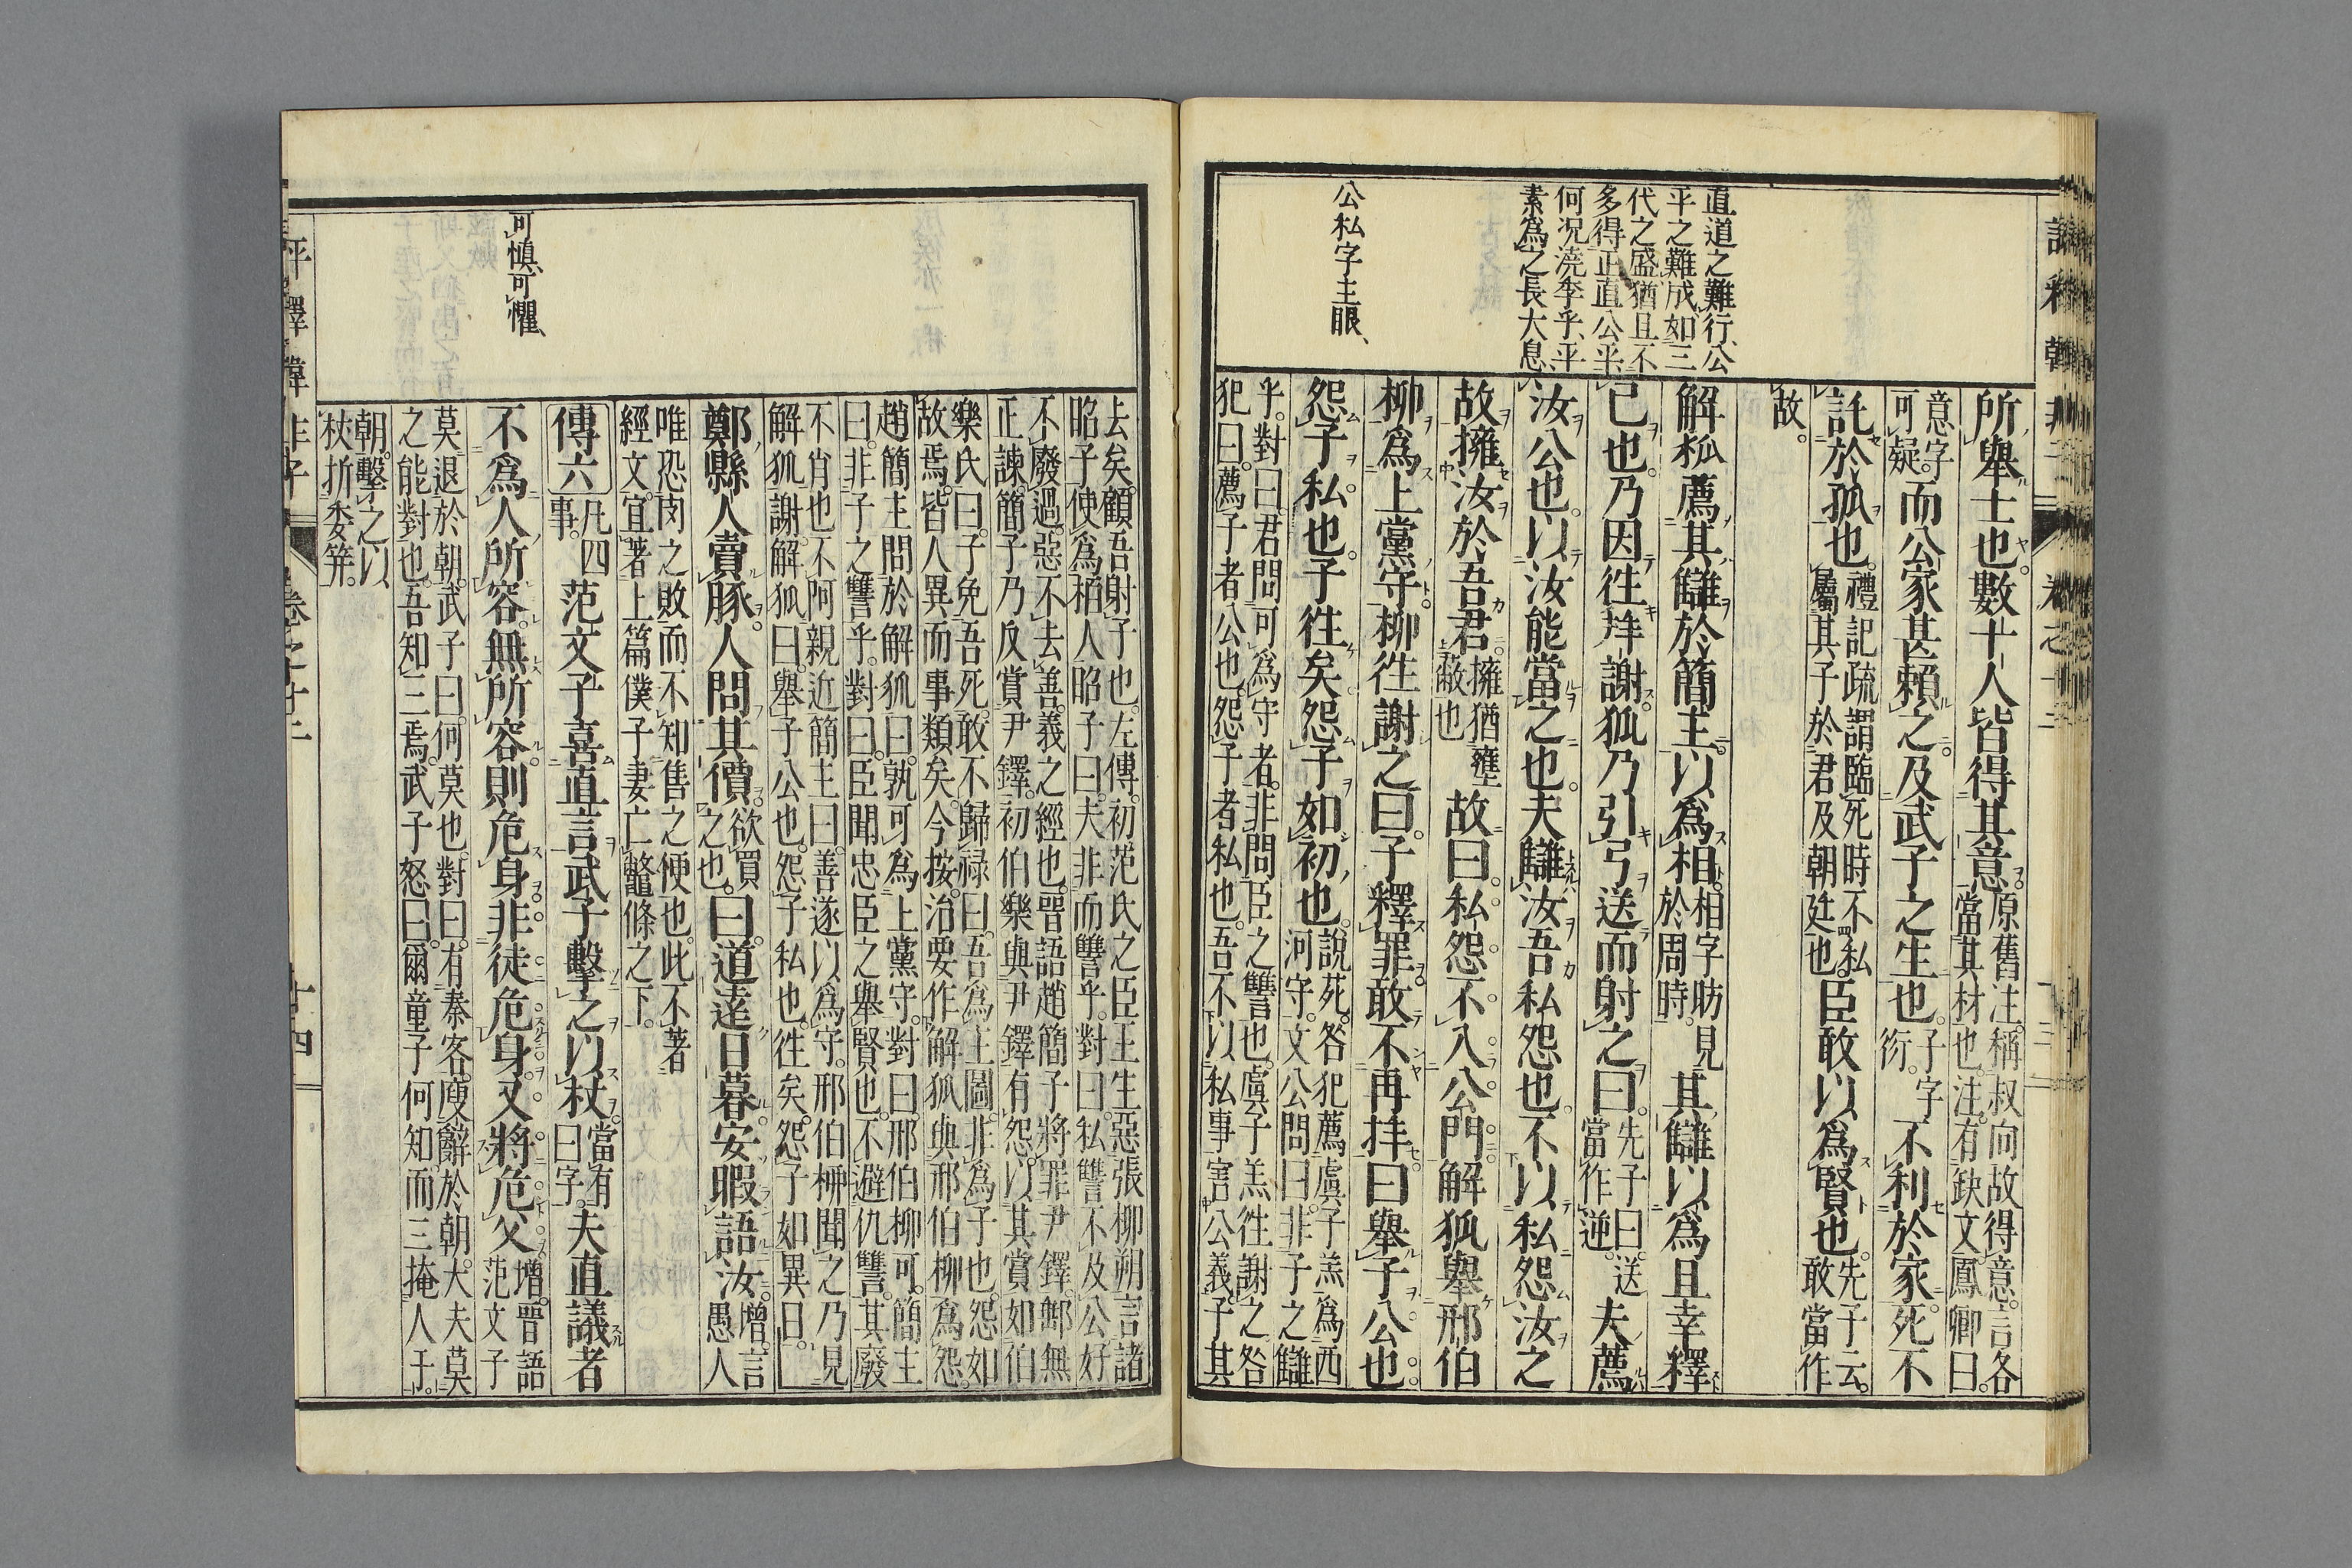 直道之難行、公
平之難成、如三
代之盛、猶且不
多得正直公平、
何況澆季乎、平
素爲之長大息、
公私字主眼、
所舉士也數十人皆得其意原舊注。稱叔向故得意。言各
當其材也。注。有缺文鳳卿曰。
意字
可疑。而公家甚賴之及武子之生也。子字
衍。不利於家死不
託於孤也。禮記疏謂臨死時不私
屬其子於君及朝廷也。臣敢以爲賢也。先子云。
敢當作
故。
解狐薦其讎於簡主以爲相。相字昉見
於周時。其讎以爲且幸釋
已也乃因往拜謝狐乃引弓送而射之曰。先子曰。送
當作逆。夫薦
汝公也。以汝能當之也。夫讎汝吾私怨也。不以私怨汝之
故擁汝於吾君。擁猶壅
蔽也故曰私怨不入公門解狐舉邢伯
柳爲上黨守柳往謝之曰。子釋罪敢不再拜曰舉子公也。
怨子私也。子往矣怨子如初也。說苑。咎犯薦虞子羔爲西
河守。文公問曰。非子之讎
乎。對曰。君問可爲守者。非問臣之讐也。虞子羔往謝之。咎
犯曰。薦子者公也。怨子者私也。吾不以私事害公義。子其
去矣。顧吾射子也。左傳。初范氏之臣王生惡張柳朔言諸
昭子使爲栢人昭子曰。夫非而讐乎。對曰。私讐不及公。好
不廢過。惡不去善。義之經也。晉語趙簡子將罪尹鐸。郵無
正諫。簡子乃反賞尹鐸。初伯樂與尹鐸有怨。以其賞如伯
樂氏曰。子免吾死。敢不歸祿曰。吾爲主圖非爲子也。怨如
故焉。皆人異而事類矣。今按。治要作解狐與邢伯柳爲怨。
趙簡主問於解狐曰。孰可爲上黨守。對曰。邢伯柳可。簡主
曰。非子之讐乎。對曰。臣聞忠臣之舉賢也。不避仇讐。其廢
不肖也。不阿親近簡主曰。善遂以爲守。邢伯柳聞之乃見
解狐謝。解狐曰。舉子公也。怨子私也。往矣。怨子如異日。
鄭縣人賣豚。人問其價。欲買
之也。曰道遠日暮安暇語汝。增。言
愚人
唯恐肉之敗而不知售之便也。此不著
經文。宜著上篇僕子妻亡鼈條之下。
傳六凡四
事。范文子喜直言武子擊之以杖當有
曰字。夫直議者
不爲人所容。無所容則危身非徒危身又將危父增。晉語
范文子
莫退於朝。武子曰。何莫也。對曰。有秦客。廋辭於朝。大夫莫
之能對也。吾知三焉。武子怒曰。爾童子何知。而三掩人于
朝。擊之以
杖折委笄。
可愼、可懼、
評釋韓非子
卷之十二
十四